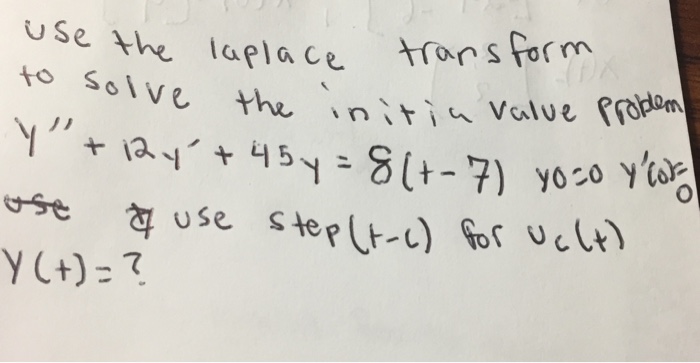 use the laplace transform
to solve the initia value problem
y'' + 12y' + 45y = 8(t-7) y0=0 y'(0)=0
use use step(t-c) for uc(t)
Y(t)=?